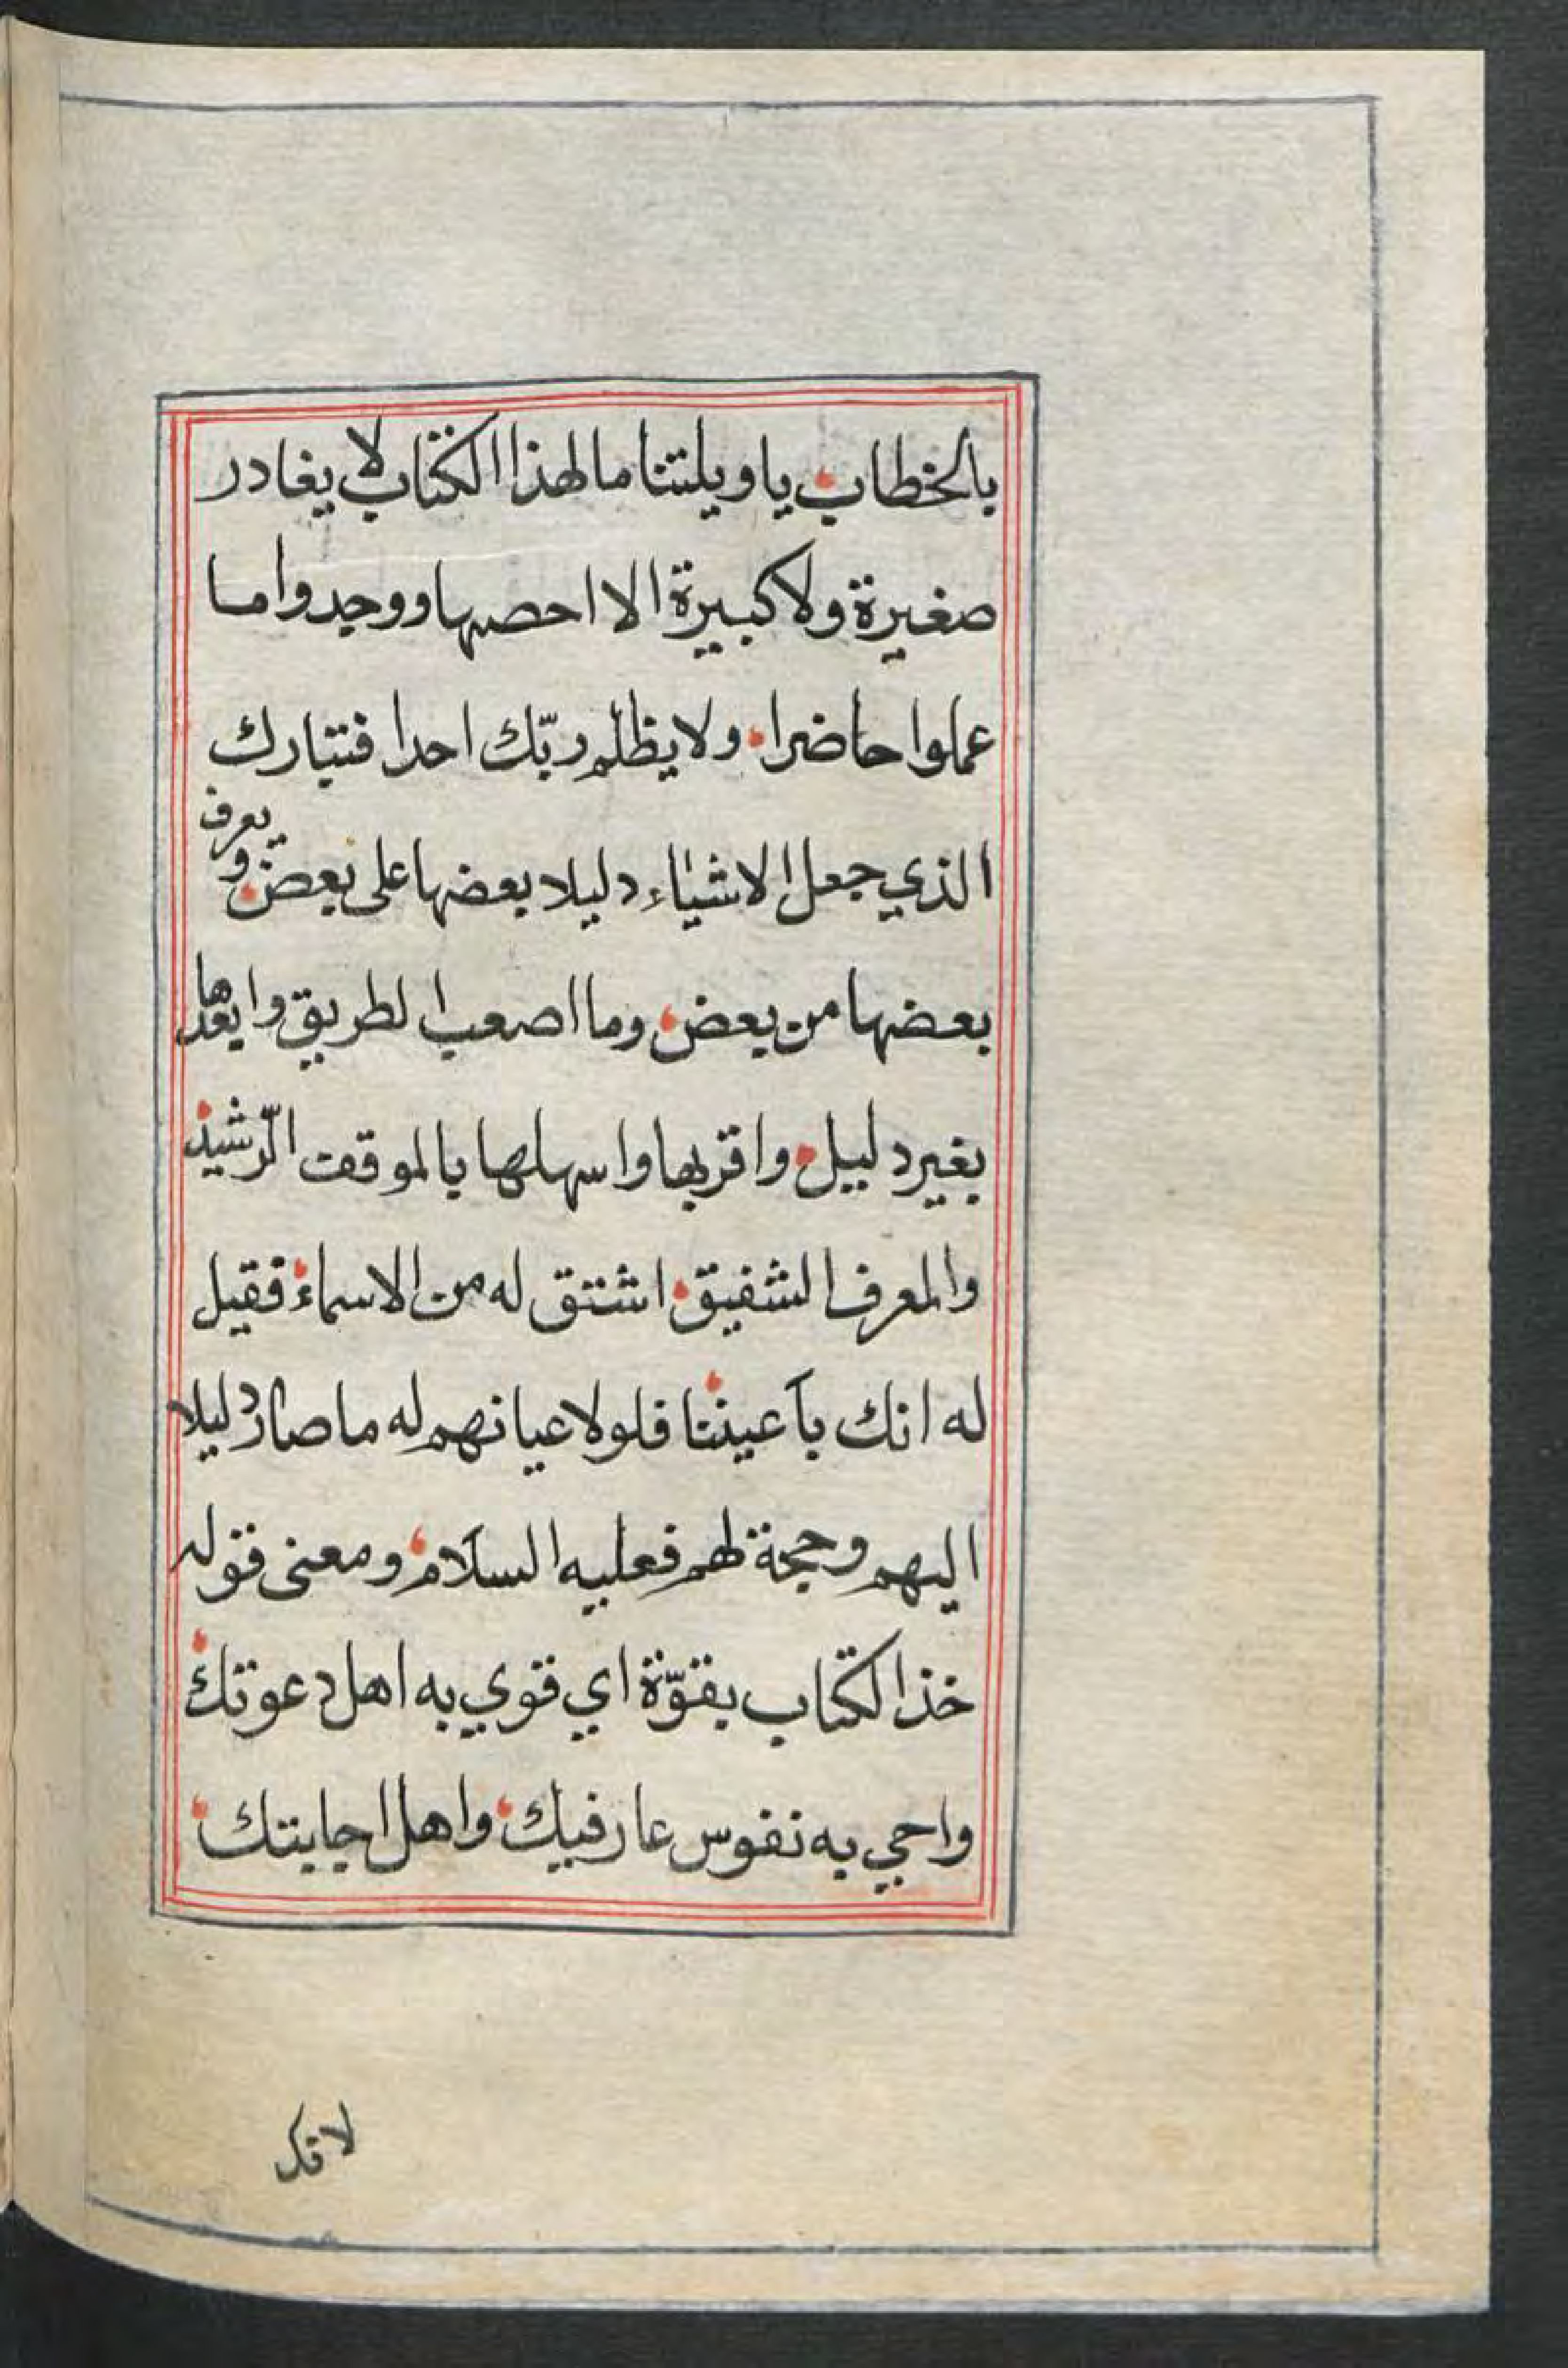 بالخطاب ياويلتنا مالهذا الكتاب لا يغادر
صغيرة ولا كبيرة الا احصيها ووجدوا ما
عملوا حاضرا ولا يظلم ربّك احدا فتبارك
الذي جعل الاشياء دليلا بعضها على بعض ويعرف
بعضها من بعض وما اصعب الطريق وابعدها
بغير دليل واقربها واسهلها بالموقف الرّشيد
والمعرف الشفيق اشتق له من الاسماء فقيل
له انك بأعيننا فلولا عيانهم له ما صار دليلا
اليهم وحجة لهم فعليه السلام ومعنى قوله
خذ الكتاب بقوّة اي قوي به اهل دعوتك
واحي به نفوس عارفيك واهل اجابتك